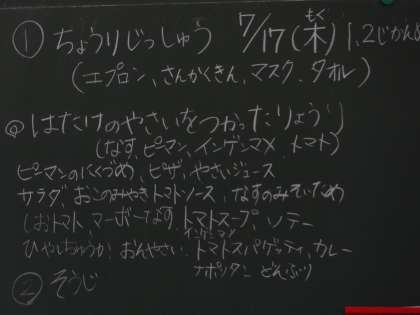 ① ちょうりじっしゅう 7/17(木) 1,2じかんめ
もく
(エプロン、さんかくきん、マスク、タオル)
◎ はたけのやさいをつかったりょうり
(なす、ピーマン、インゲンマメ、トマト)
ピーマンのにくづめ、ピザ、やさいジュース
サラダ、おこのみやき、トマトソース、なすのみそいため
しおトマト、マーボーなす、トマトスープ、ソテー
インゲンマメ
ひやしちゅうか、おんやさい、トマトスパゲッティ、カレー
ナポリタン どんぶり
② そうじ